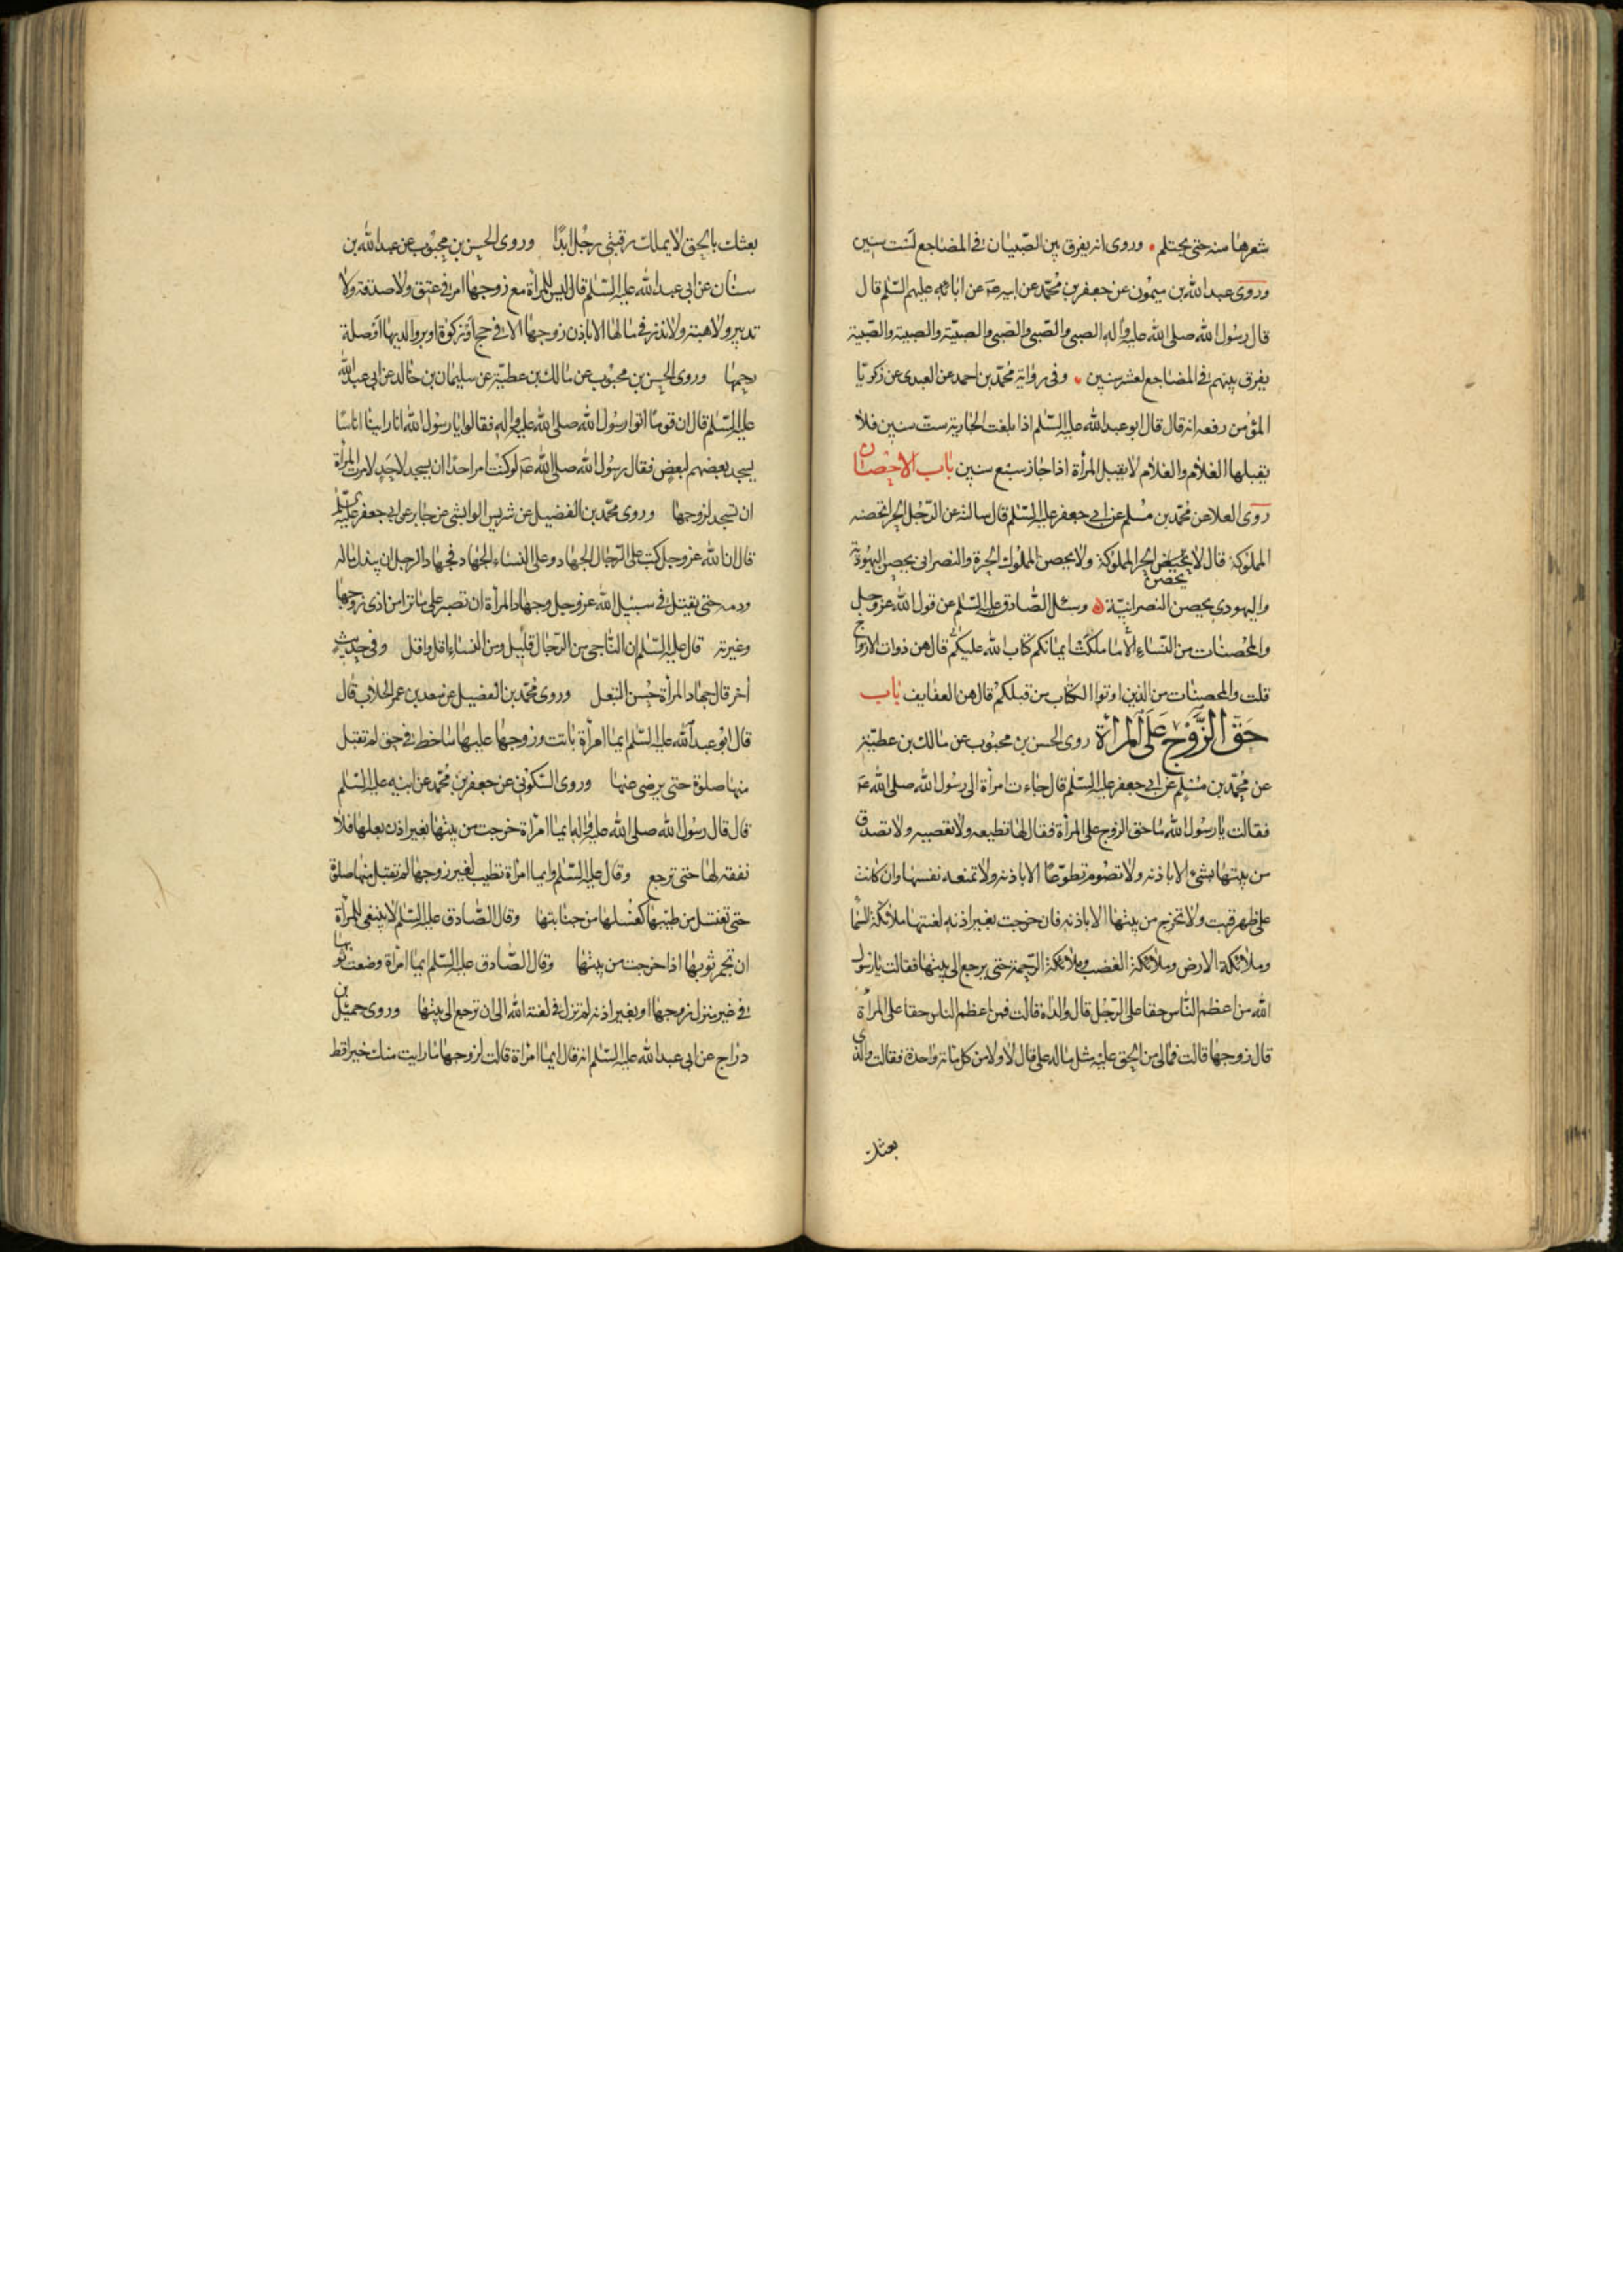 شعرها منه حتى يحتلم وروى انه يفرق بين الصبيان فى المضاجع لست سنين
وروى عبد الله بن ميمون عن جعفر بن محمد عن ابيه ع عن ابائه عليهم السلم قال
قال رسول الله صلى الله عليه واله الصبى والصبى والصبى والصبية والصبية والصبية
يفرق بينهم فى المضاجع لعشر سنين وفى رواية محمد بن احمد عن العبدى عن زكريا
المؤمن رفعه انه قال قال ابو عبد الله عليه السلم اذا بلغت الجارية ست سنين فلا
يقبلها الغلام والغلام لا يقبل المرأة اذا جاز سبع سنين باب الاحصان
روى العلا عن محمد بن مسلم عن ابى جعفر عليه السلم قال سالته عن الرجل الحر اتحصنه
المملوكة قال لا يحصن الحر المملوكة ولا يحصن المملوك الحرة والنصرانى يحصن اليهودية
يحصن
واليهودى يحصن النصرانية وسئل الصادق عليه السلم عن قول الله عز وجل
والمحصنات من النساء الا ما ملكت ايمانكم كتاب الله عليكم قال هن ذوات الازواج
قلت والمحصنات من الذين اوتوا الكتاب من قبلكم قال هن العفايف باب
حق الزوج على المرأة روى الحسن بن محبوب عن مالك بن عطية
عن محمد بن مسلم عن ابى جعفر عليه السلم قال جاءت امرأة الى رسول الله صلى الله ع
فقالت يا رسول الله ما حق الزوج على المرأة فقال لها تطيعه ولا تعصيه ولا تصدق
من بيتها بشئ الا باذنه ولا تصوم تطوعا الا باذنه ولا تمنعه نفسها وان كانت
على ظهر قتب ولا تخرج من بيتها الا باذنه فان خرجت بغير اذنه لعنتها ملائكة السما
وملائكة الارض وملائكة الغضب وملائكة الرحمة حتى يرجع الى بيتها فقالت يا رسول
الله من اعظم الناس حقا على الرجل قال والداه قالت فمن اعظم الناس حقا على المرأة
قال زوجها قالت فمالى من الحق عليه مثل ماله على قال لا ولا من كل مائة واحدة فقالت والذى
بعثك
بعثك بالحق لا يملك رقبتى رجل ابدا وروى الحسن بن محبوب عن عبد الله بن
سنان عن ابى عبد الله عليه السلم قال ليس للمرأة مع زوجها امر فى عتق ولا صدقة ولا
تدبير ولا هبة ولا نذر فى مالها الا باذن زوجها الا فى حج او زكوة او بر والديها او صلة
رحمها وروى الحسن بن محبوب عن مالك بن عطية عن سليمان بن خالد عن ابى عبد الله
عليه السلم قال ان قوما اتوا رسول الله صلى الله عليه واله فقالوا يا رسول الله انا راينا اناسا
يسجد بعضهم لبعض فقال رسول الله صلى الله ع لو كنت امر احدا ان يسجد لاحد لامرت المرأة
ان تسجد لزوجها وروى محمد بن الفضيل عن شريس الوابشى عن جابر عن ابى جعفر عليه السلم
قال ان الله عز وجل كتب على الرجال الجهاد وعلى النساء الجهاد فجهاد الرجل ان يبذل ماله
ودمه حتى يقتل فى سبيل الله عز وجل وجهاد المرأة ان تصبر على ما ترا من اذى زوجها
وغيرته قال عليه السلم ان الناجى من الرجال قليل ومن النساء اقل واقل وفى حديث
اخر قال جهاد المرأة حسن التبعل وروى محمد بن الفضيل عن سعد بن عمر الجلاب قال
قال ابو عبد الله عليه السلم ايما امرأة باتت وزوجها عليها ساخط فى حق لم تقبل
منها صلوة حتى يرضى عنها وروى السكونى عن جعفر بن محمد عن ابيه عليه السلم
قال قال رسول الله صلى الله عليه واله ايما امرأة خرجت من بيتها بغير اذن بعلها فلا
نفقة لها حتى ترجع وقال عليه السلم وايما امرأة تطيب لغير زوجها لم تقبل منها صلوة
حتى تغتسل من طيبها كغسلها من جنابتها وقال الصادق عليه السلم لا ينبغى للمرأة
ان تجمر ثوبها اذا خرجت من بيتها وقال الصادق عليه السلم ايما امرأة وضعت ثوبها
فى غير منزل زوجها او بغير اذنه لم تزل فى لعنة الله الى ان ترجع الى بيتها وروى جميل بن
دراج عن ابى عبد الله عليه السلم انه قال ايما امرأة قالت لزوجها ما رايت منك خيرا قط